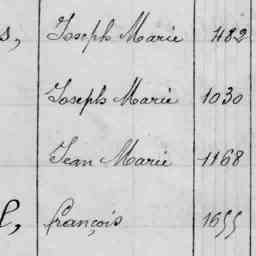 s, Joseph Marie 482
Joseph Marie 1030
Jean Marie 1168
l, françois 1655